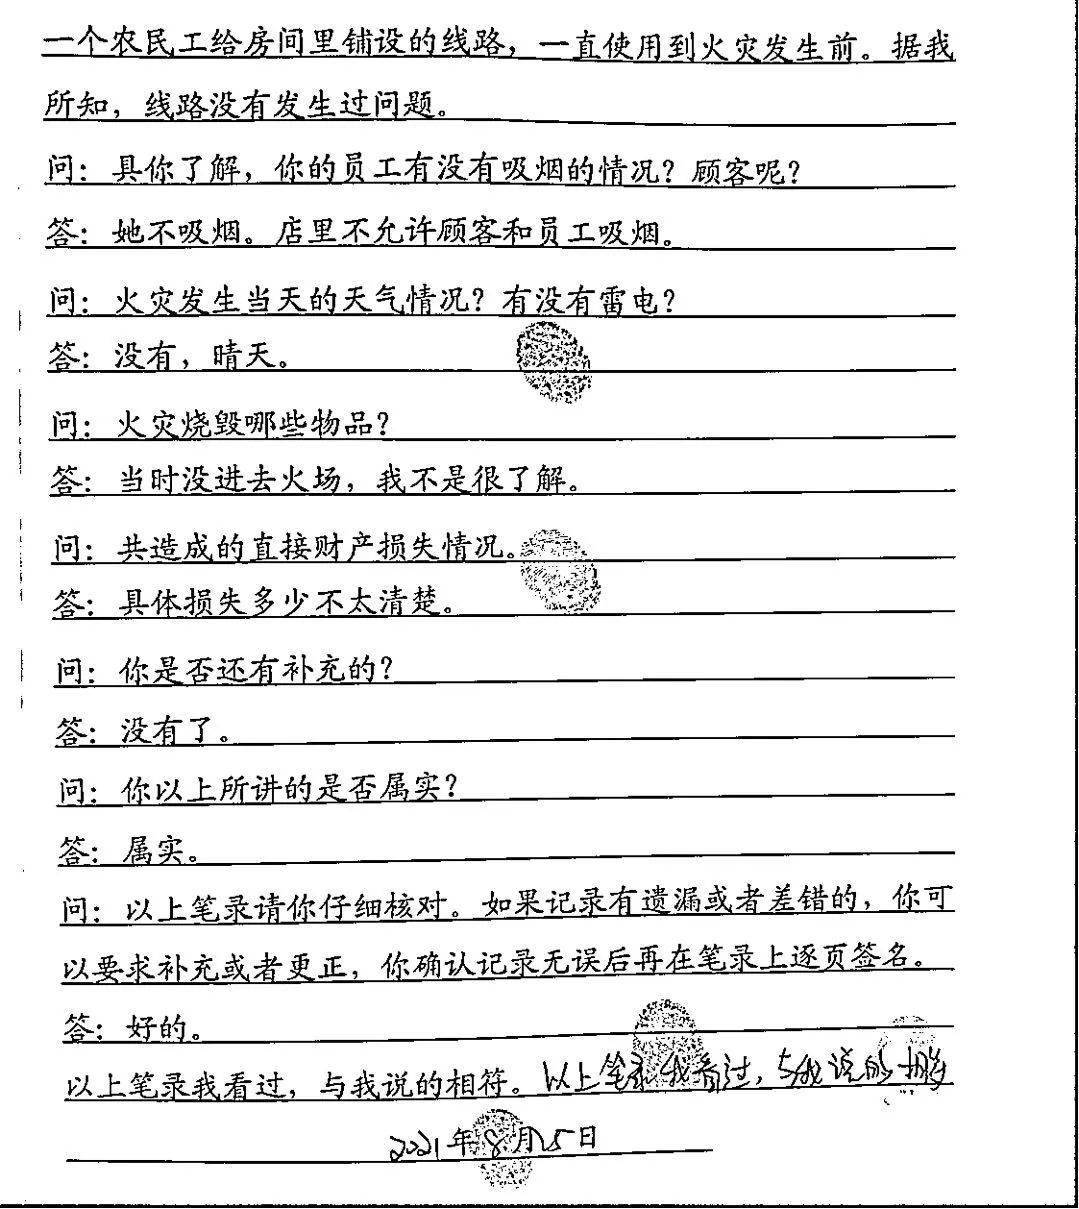 一个农民工给房间里铺设的线路，一直使用到火灾发生前。据我
所知，线路没有发生过问题。
问：具你了解，你的员工有没有吸烟的情况？顾客呢？
答：她不吸烟。店里不允许顾客和员工吸烟。
问：火灾发生当天的天气情况？有没有雷电？
答：没有，晴天。
问：火灾烧毁哪些物品？
答：当时没进去火场，我不是很了解。
问：共造成的直接财产损失情况。
答：具体损失多少不太清楚。
问：你是否还有补充的？
答：没有了。
问：你以上所讲的是否属实？
答：属实。
问：以上笔录请你仔细核对。如果记录有遗漏或者差错的，你可
以要求补充或者更正，你确认记录无误后再在笔录上逐页签名。
答：好的。
以上笔录我看过，与我说的相符。以上笔录我看过，与我说的相符
2021年8月15日